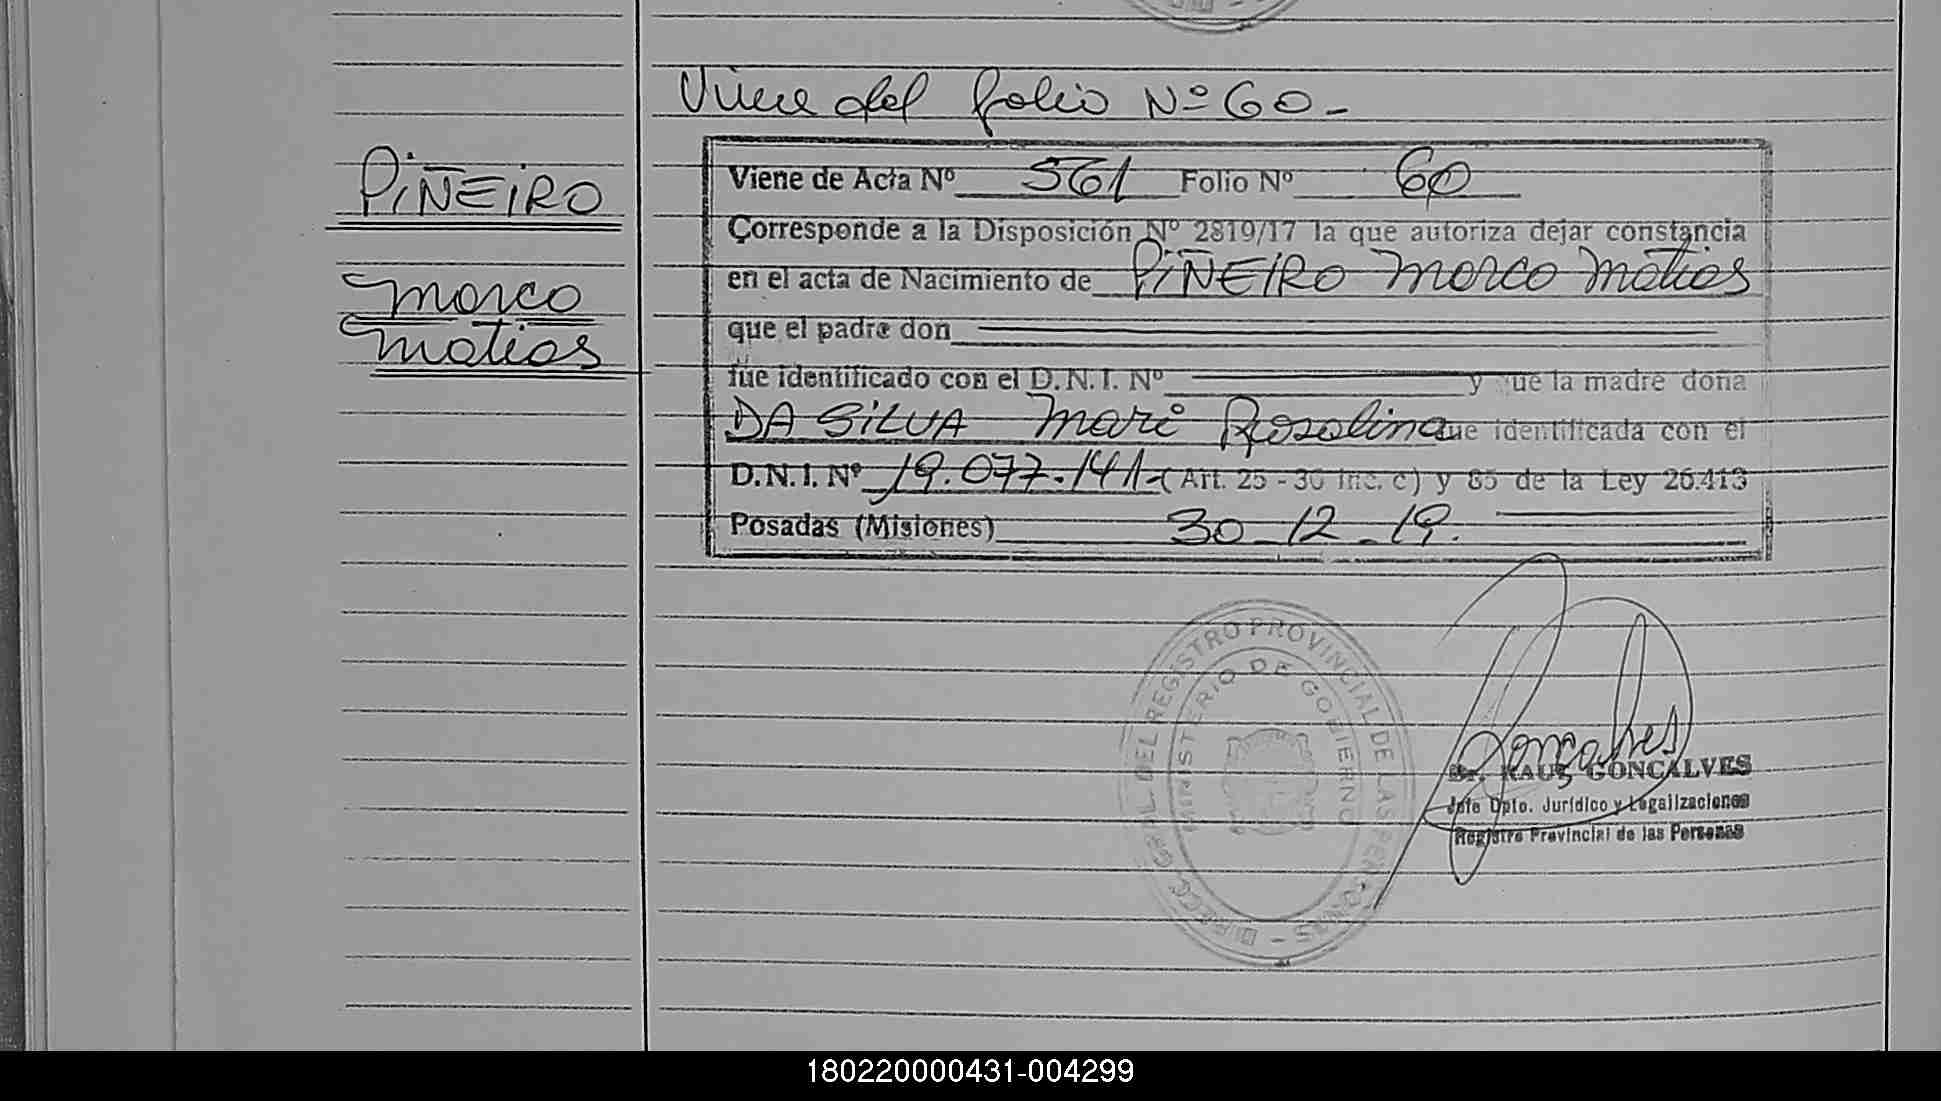 Viene del folio Nº 60-
PIÑEIRO
Marco
Matias
Viene de Acta Nº 561 Folio Nº 60
Corresponde a la Disposición Nº 2819/17 la que autoriza dejar constancia
en el acta de Nacimiento de PIÑEIRO Marco Matias
que el padre don
fue identificado con el D.N.I. Nº y que la madre doña
DA SILVA Mari Rosalina que identificada con el
D.N.I. Nº 19.077.141- (Art. 25 - 30 inc. c) y 85 de la Ley 26.413
Posadas (Misiones) 30-12-19.
DIRECC. GRAL. DEL REGISTRO PROVINCIAL DE LAS PERSONAS -
MINISTERIO DE GOBIERNO
Goncalves
Dr. RAUL GONCALVES
Jefe Dpto. Jurídico y Legalizaciones
Registro Provincial de las Personas
180220000431-004299